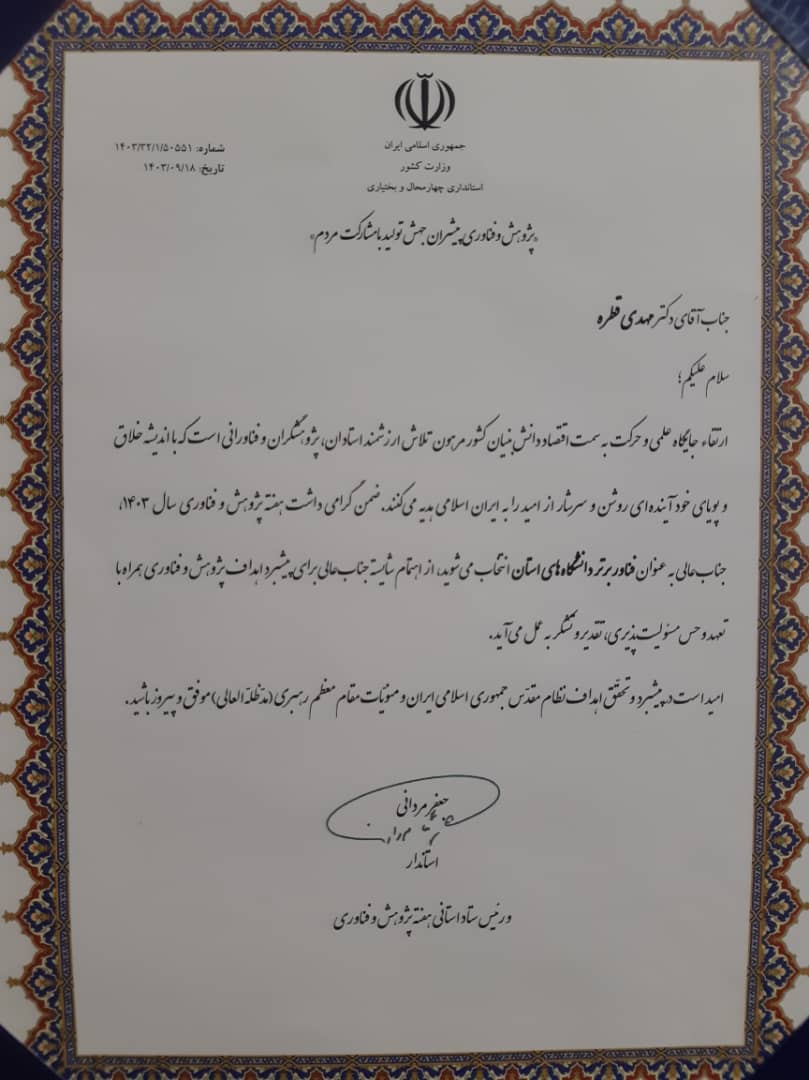 جمهوری اسلامی ایران
وزارت کشور
استانداری چهارمحال و بختیاری
شماره: ۱۴۰۳/۳۲/۱/۵۰۵۵۱
تاریخ: ۱۴۰۳/۰۹/۱۸
«پژوهش و فناوری پیشران جهش تولید با مشارکت مردم»
جناب آقای دکتر مهدی قطره
سلام علیکم؛
ارتقاء جایگاه علمی و حرکت به سمت اقتصاد دانش بنیان کشور مرهون تلاش ارزشمند استادان، پژوهشگران و فناورانی است که با اندیشه خلاق
و پویای خود آینده ای روشن و سرشار از امید را به ایران اسلامی هدیه می‌کنند. ضمن گرامی داشت هفته پژوهش و فناوری سال ۱۴۰۳،
جناب عالی به عنوان فناور برتر دانشگاه های استان انتخاب می‌شوید، از اهتمام شایسته جناب عالی برای پیشبرد اهداف پژوهش و فناوری همراه با
تعهد و حس مسئولیت پذیری، تقدیر و تشکر به عمل می‌آید.
امید است در پیشبرد و تحقق اهداف نظام مقدّس جمهوری اسلامی ایران و منویّات مقام معظم رهبری (مدّظلّه العالی) موفق و پیروز باشید.
جعفر مردانی
استاندار
و رئیس ستاد استانی هفته پژوهش و فناوری